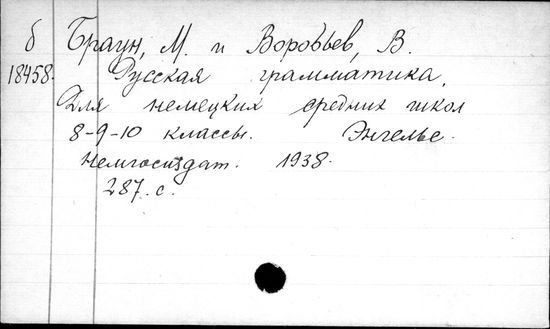 б Браун, М. и Воробьев, В.
18458. Русская грамматика,
Для немецких средних школ
8-9-10 классы. Энгельс.
Немгосиздат. 1938.
287. с.